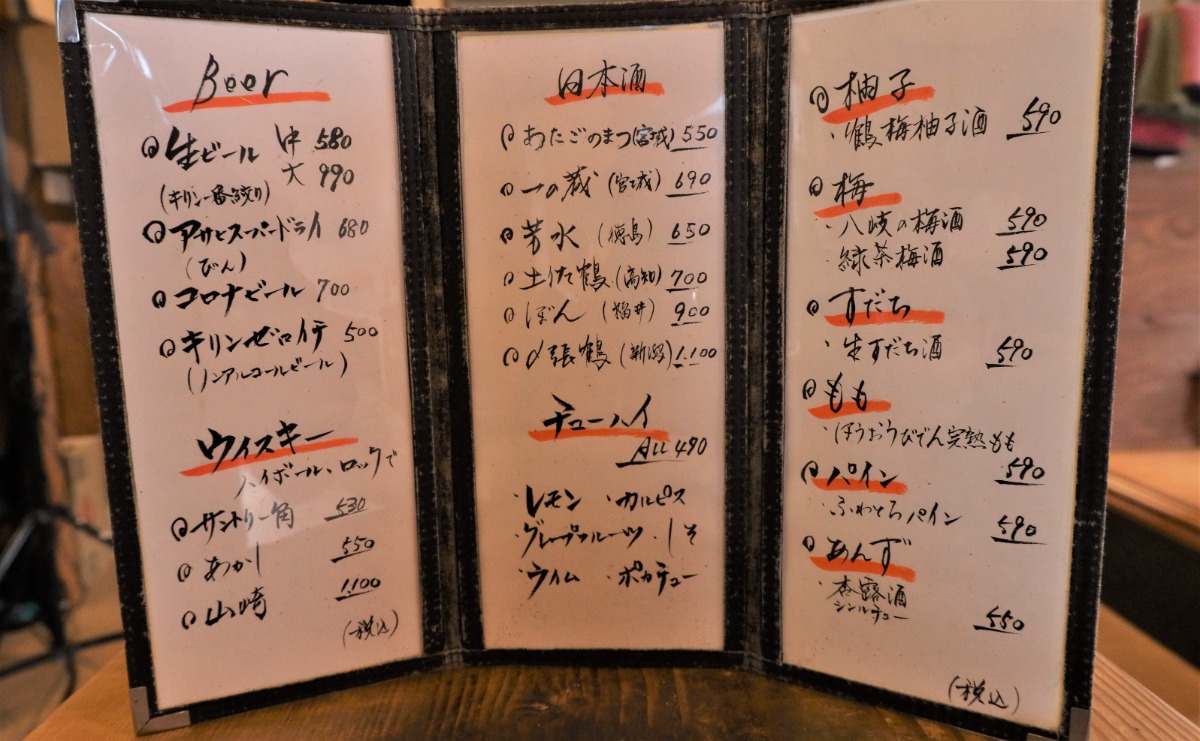 Beer
生ビール 中 580
大 990
(キリン一番搾り)
アサヒスーパードライ 680
(びん)
コロナビール 700
キリンゼロイチ 500
(ノンアルコールビール)
ウイスキー
ハイボール、ロックで
サントリー角 530
あかし 550
山崎 1.100
(税込)
日本酒
あたごのまつ(宮城) 550
一の蔵 (宮城) 690
芳水 (徳島) 650
土佐鶴 (高知) 700
ぼん (福井) 900
〆張鶴 (新潟) 1.100
チューハイ
ALL 490
・レモン ・カルピス
・グレープフルーツ ・しそ
・ライム ・ポカチュー
柚子
・鶴梅柚子酒 590
梅
・八岐の梅酒 590
緑茶梅酒 590
すだち
・生すだち酒 590
もも
・ほうおうびでん完熟もも
590
パイン
・ふわとろパイン 590
あんず
・杏露酒
シンルチュー
550
(税込)